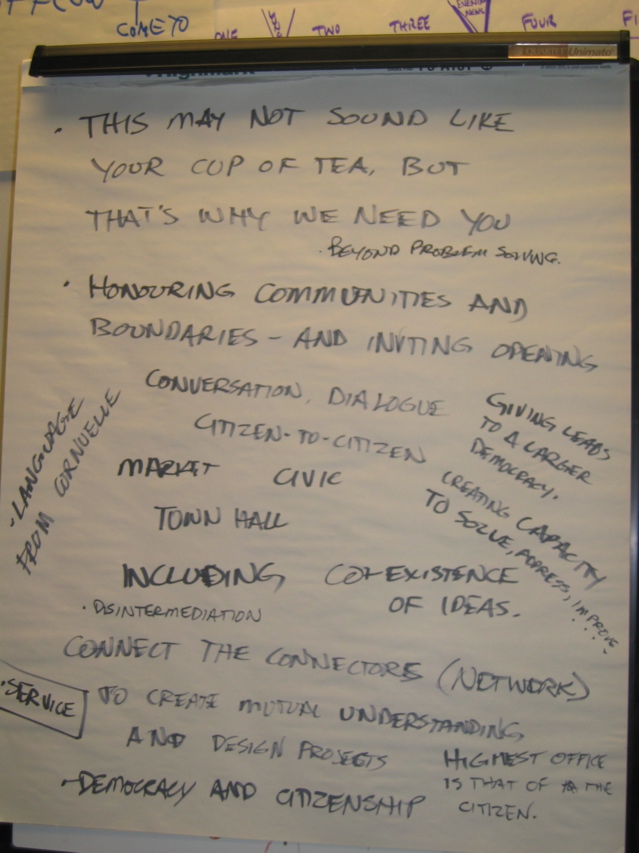 COME TO
ONE
TWO
THREE
FOUR
• THIS MAY NOT SOUND LIKE
YOUR CUP OF TEA, BUT
THAT'S WHY WE NEED YOU
• BEYOND PROBLEM SOLVING.
• HONOURING COMMUNITIES AND
BOUNDARIES – AND INVITING OPENING
CONVERSATION, DIALOGUE
CITIZEN-TO-CITIZEN
MARKET CIVIC
TOWN HALL
• LANGUAGE
FROM CORNUELLE
GIVING LEADS
TO A LARGER
DEMOCRACY.
CREATING CAPACITY
TO SOLVE, ADDRESS, IMPROVE...
INCLUDING CO-EXISTENCE
OF IDEAS.
• DISINTERMEDIATION
CONNECT THE CONNECTORS (NETWORK)
• SERVICE
TO CREATE MUTUAL UNDERSTANDING
AND DESIGN PROJECTS
HIGHEST OFFICE
IS THAT OF THE
CITIZEN.
- DEMOCRACY AND CITIZENSHIP